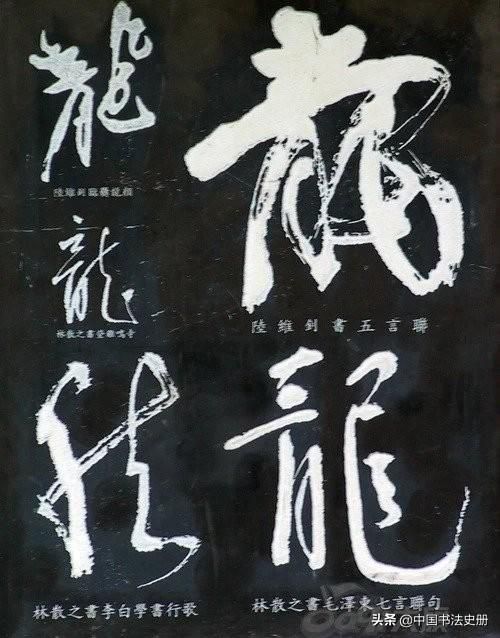 龍
陸維釗臨爨龍顏
龍
陸維釗書五言聯
龍
林散之書登雞鳴寺
龍
林散之書李白草書歌行
龍
林散之書毛澤東七言聯句
头条 @中国书法史册